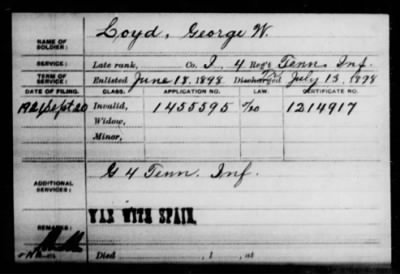 NAME OF SOLDIER: Loyd, George W.
SERVICE: Late rank, Co. I, 4 Reg't Tenn. Inf.
TERM OF SERVICE: Enlisted June 18, 1898 Discharged July 13, 1898
DATE OF FILING. CLASS. APPLICATION NO. LAW. CERTIFICATE NO.
Sept 20 Invalid, 1455595 1214917
Widow,
Minor,
ADDITIONAL SERVICES: G 4 Tenn. Inf.
WAR WITH SPAIN.
REMARKS:
Died , 1 , at